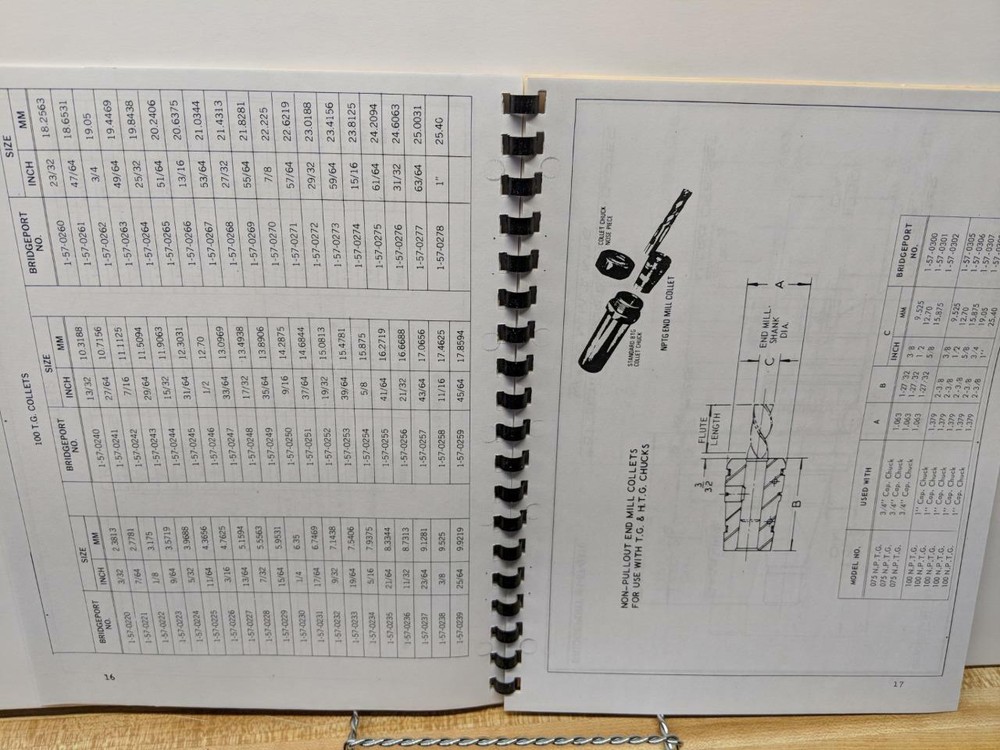 100 T.G. COLLETS
SIZE SIZE SIZE
BRIDGEPORT NO. INCH MM BRIDGEPORT NO. INCH MM BRIDGEPORT NO. INCH MM
1-57-0220 3/32 2.3813 1-57-0240 13/32 10.3188 1-57-0260 23/32 18.2563
1-57-0221 7/64 2.7781 1-57-0241 27/64 10.7156 1-57-0261 47/64 18.6531
1-57-0222 1/8 3.175 1-57-0242 7/16 11.1125 1-57-0262 3/4 19.05
1-57-0223 9/64 3.5719 1-57-0243 29/64 11.5094 1-57-0263 49/64 19.4469
1-57-0224 5/32 3.9688 1-57-0244 15/32 11.9063 1-57-0264 25/32 19.8438
1-57-0225 11/64 4.3656 1-57-0245 31/64 12.3031 1-57-0265 51/64 20.2406
1-57-0226 3/16 4.7625 1-57-0246 1/2 12.70 1-57-0266 13/16 20.6375
1-57-0227 13/64 5.1594 1-57-0247 33/64 13.0969 1-57-0267 53/64 21.0344
1-57-0228 7/32 5.5563 1-57-0248 17/32 13.4938 1-57-0268 27/32 21.4313
1-57-0229 15/64 5.9531 1-57-0249 35/64 13.8906 1-57-0269 55/64 21.8281
1-57-0230 1/4 6.35 1-57-0250 9/16 14.2875 1-57-0270 7/8 22.225
1-57-0231 17/64 6.7469 1-57-0251 37/64 14.6844 1-57-0271 57/64 22.6219
1-57-0232 9/32 7.1438 1-57-0252 19/32 15.0813 1-57-0272 29/32 23.0188
1-57-0233 19/64 7.5406 1-57-0253 39/64 15.4781 1-57-0273 59/64 23.4156
1-57-0234 5/16 7.9375 1-57-0254 5/8 15.875 1-57-0274 15/16 23.8125
1-57-0235 21/64 8.3344 1-57-0255 41/64 16.2719 1-57-0275 61/64 24.2094
1-57-0236 11/32 8.7313 1-57-0256 21/32 16.6688 1-57-0276 31/32 24.6063
1-57-0237 23/64 9.1281 1-57-0257 43/64 17.0656 1-57-0277 63/64 25.0031
1-57-0238 3/8 9.525 1-57-0258 11/16 17.4625 1-57-0278 1" 25.40
1-57-0239 25/64 9.9219 1-57-0259 45/64 17.8594
16
COLLET CHUCK
NOSE PIECE
STANDARD HTG
COLLET CHUCK
NPTG END MILL COLLET
NON-PULLOUT END MILL COLLETS
FOR USE WITH T.G. & H.T.G. CHUCKS
3/32
FLUTE
LENGTH
B
C
END MILL
SHANK
DIA.
A
C
MODEL NO. USED WITH A B INCH MM BRIDGEPORT NO.
075 N.P.T.G. 3/4" Cap. Chuck 1.063 1-27/32 3/8 9.525 1-57-0300
075 N.P.T.G. 3/4" Cap. Chuck 1.063 1-27/32 1/2 12.70 1-57-0301
075 N.P.T.G. 3/4" Cap. Chuck 1.063 1-27/32 5/8 15.875 1-57-0302
100 N.P.T.G. 1" Cap. Chuck 1.379 2-3/8 3/8 9.525 1-57-0305
100 N.P.T.G. 1" Cap. Chuck 1.379 2-3/8 1/2 12.70 1-57-0306
100 N.P.T.G. 1" Cap. Chuck 1.379 2-3/8 5/8 15.875 1-57-0307
100 N.P.T.G. 1" Cap. Chuck 1.379 2-3/8 3/4 19.05
100 N.P.T.G. 1" Cap. Chuck 1.379 2-3/8 1" 25.40
17